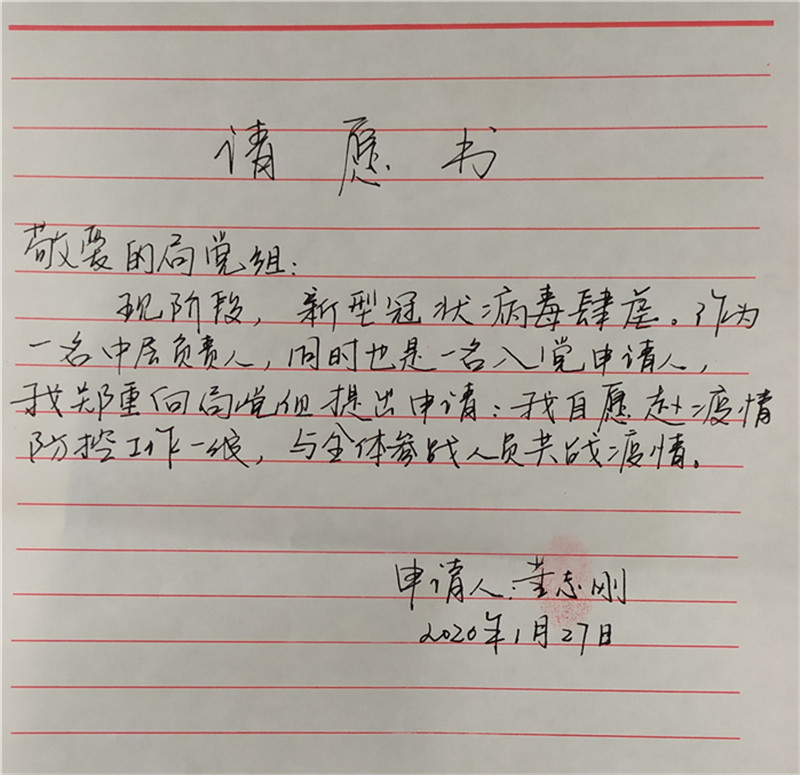 请愿书
敬爱的局党组:
现阶段，新型冠状病毒肆虐。作为
一名中层负责人，同时也是一名入党申请人，
我郑重向局党组提出申请：我自愿赴疫情
防控工作一线，与全体参战人员共战疫情。
申请人：董志刚
2020年1月27日